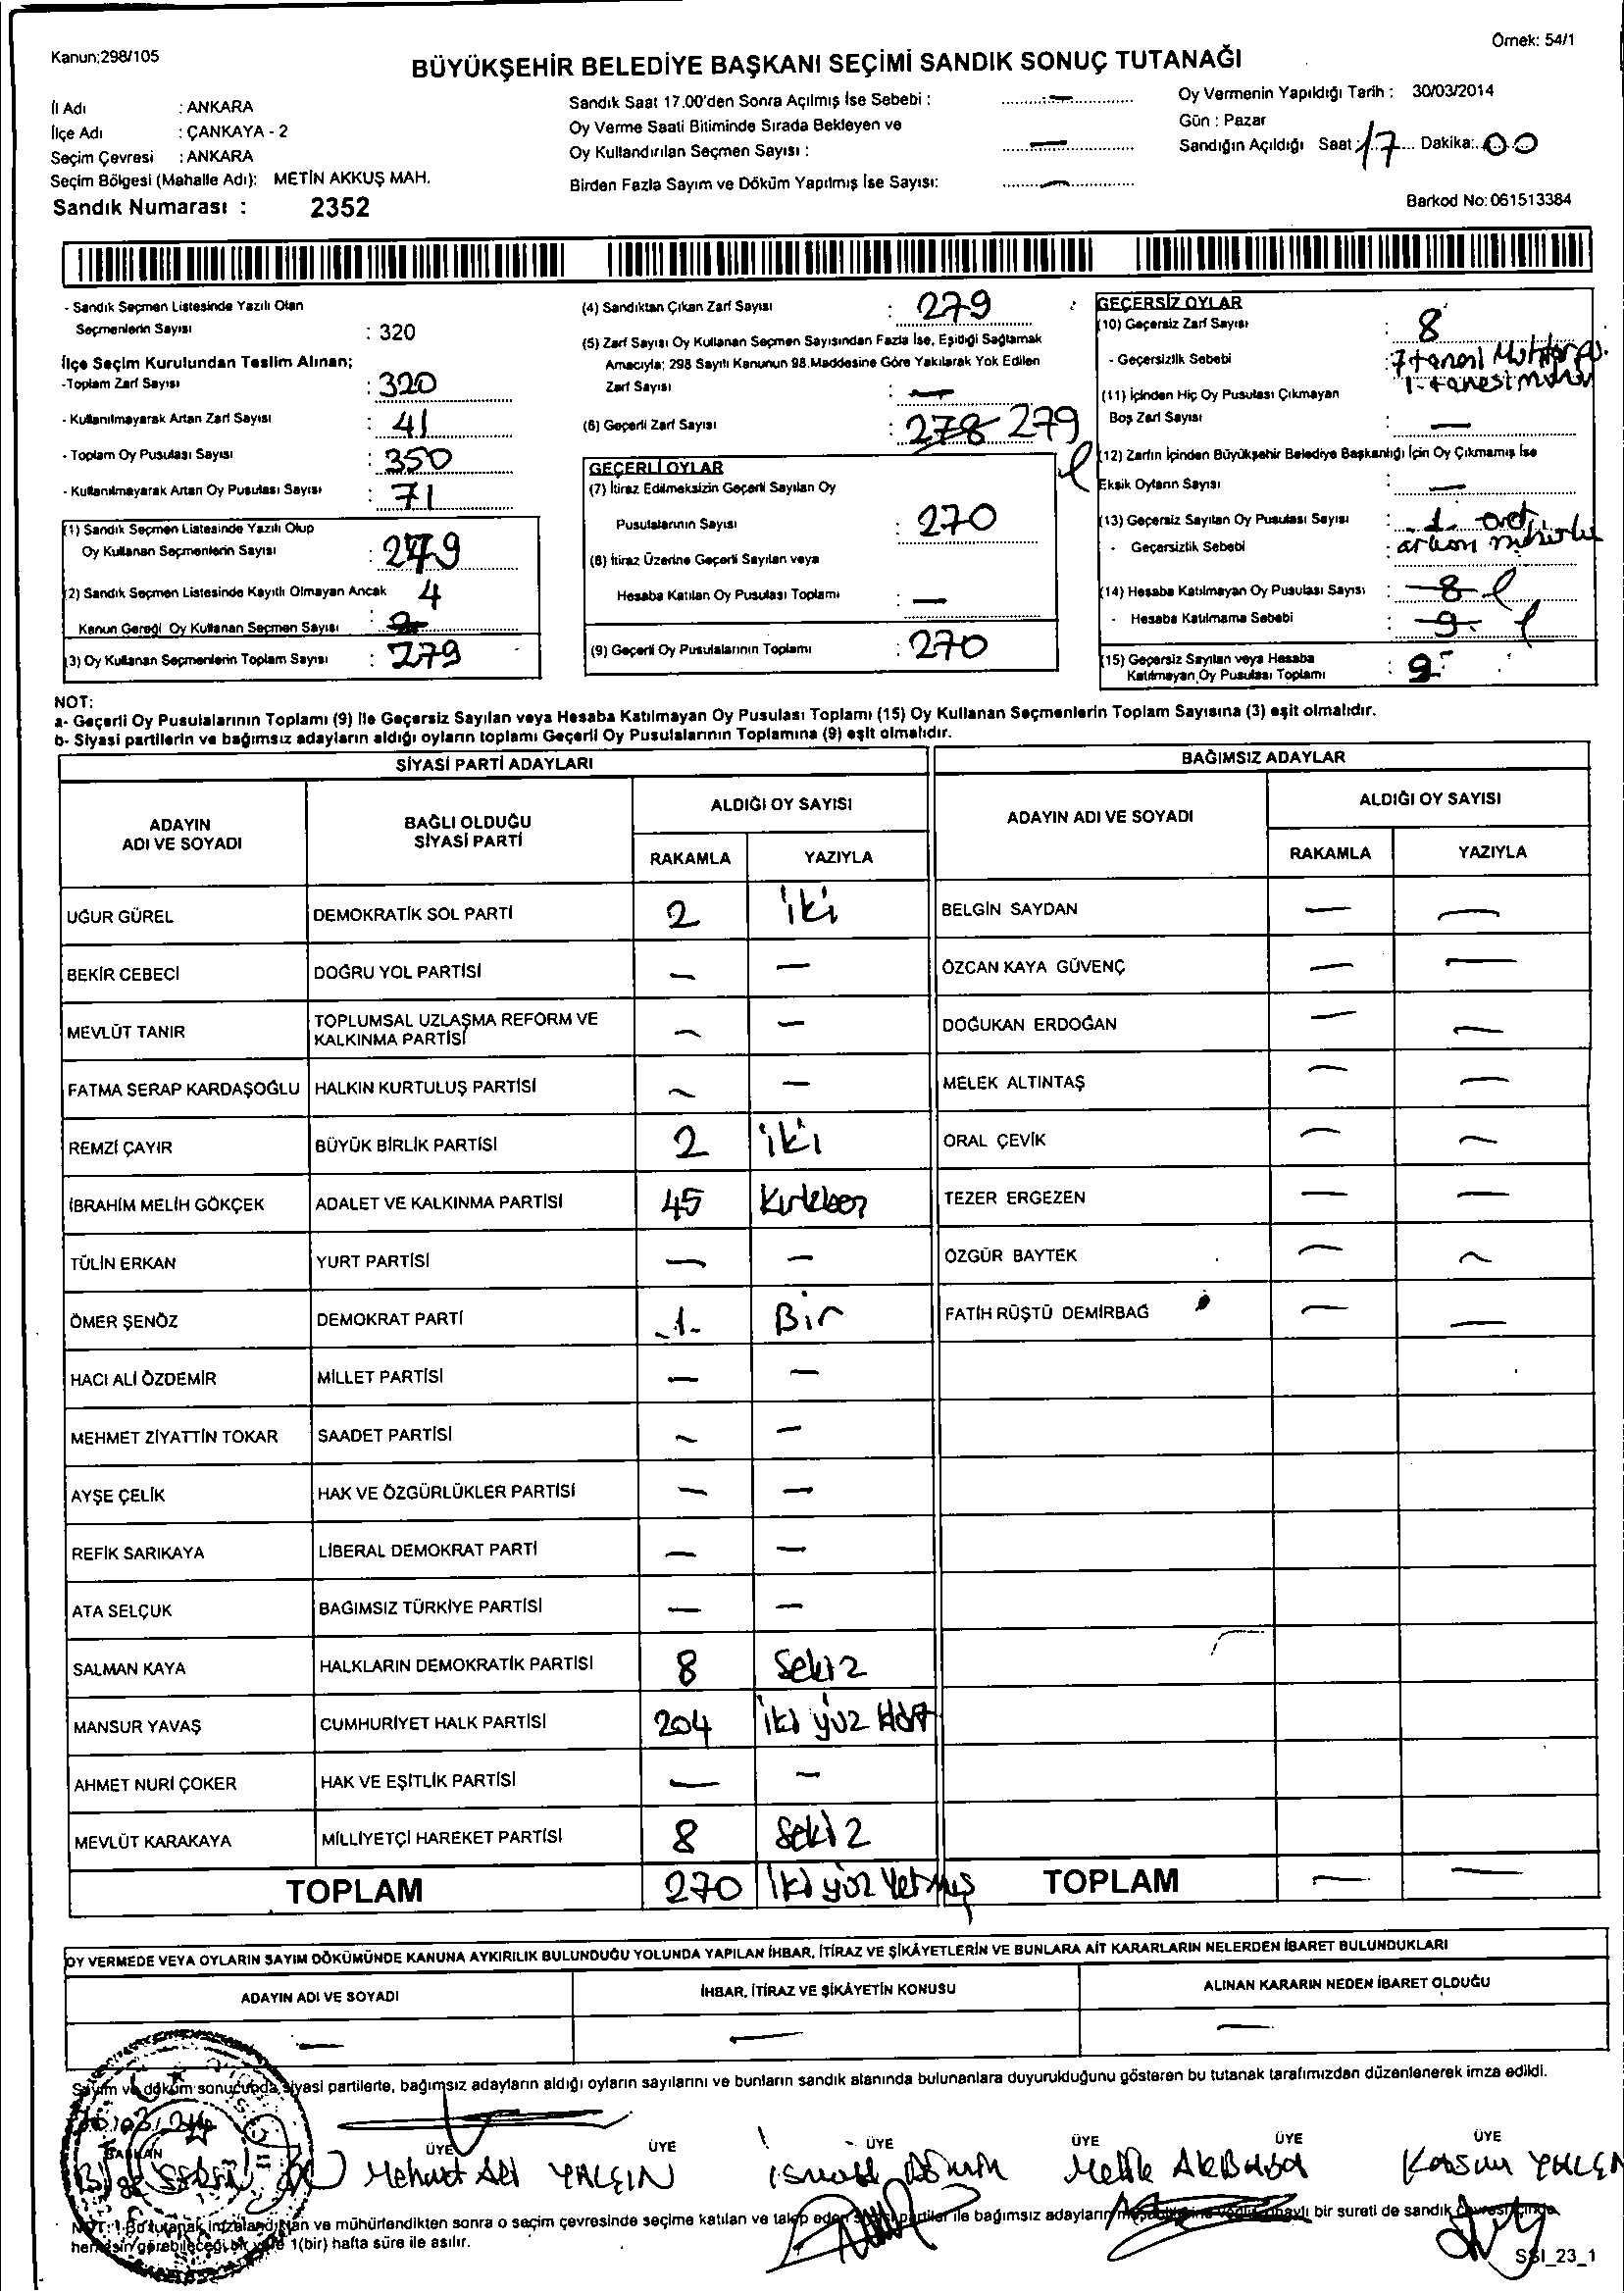 Kanun:298/105
Örnek: 54/1
BÜYÜKŞEHİR BELEDİYE BAŞKANI SEÇİMİ SANDIK SONUÇ TUTANAĞI
İl Adı : ANKARA
İlçe Adı : ÇANKAYA - 2
Seçim Çevresi : ANKARA
Seçim Bölgesi (Mahalle Adı): METİN AKKUŞ MAH.
Sandık Numarası : 2352
Sandık Saat 17.00'den Sonra Açılmış İse Sebebi : —
Oy Verme Saati Bitiminde Sırada Bekleyen ve
Oy Kullandırılan Seçmen Sayısı : —
Birden Fazla Sayım ve Döküm Yapılmış İse Sayısı: —
Oy Vermenin Yapıldığı Tarih : 30/03/2014
Gün : Pazar
Sandığın Açıldığı Saat 17 Dakika: 00
Barkod No: 061513384
- Sandık Seçmen Listesinde Yazılı Olan
Seçmenlerin Sayısı : 320
İlçe Seçim Kurulundan Teslim Alınan;
-Toplam Zarf Sayısı : 320
- Kullanılmayarak Artan Zarf Sayısı : 41
- Toplam Oy Pusulası Sayısı : 350
- Kullanılmayarak Artan Oy Pusulası Sayısı : 71
(1) Sandık Seçmen Listesinde Yazılı Olup
Oy Kullanan Seçmenlerin Sayısı : 279
(2) Sandık Seçmen Listesinde Kayıtlı Olmayan Ancak 4
Kanun Gereği Oy Kullanan Seçmen Sayısı :
(3) Oy Kullanan Seçmenlerin Toplam Sayısı : 279
(4) Sandıktan Çıkan Zarf Sayısı : 279
(5) Zarf Sayısı Oy Kullanan Seçmen Sayısından Fazla İse, Eşitliği Sağlamak
Amacıyla; 298 Sayılı Kanunun 98.Maddesine Göre Yakılarak Yok Edilen
Zarf Sayısı : —
(6) Geçerli Zarf Sayısı : 278 279
GEÇERLİ OYLAR
(7) İtiraz Edilmeksizin Geçerli Sayılan Oy
Pusulalarının Sayısı : 270
(8) İtiraz Üzerine Geçerli Sayılan veya
Hesaba Katılan Oy Pusulası Toplamı : —
(9) Geçerli Oy Pusulalarının Toplamı : 270
GEÇERSİZ OYLAR
(10) Geçersiz Zarf Sayısı : 8
- Geçersizlik Sebebi : 7 tanesi
1-tanesi
(11) İçinden Hiç Oy Pusulası Çıkmayan
Boş Zarf Sayısı : —
(12) Zarfın İçinden Büyükşehir Belediye Başkanlığı İçin Oy Çıkmamış İse
Eksik Oyların Sayısı : —
(13) Geçersiz Sayılan Oy Pusulası Sayısı : 1
- Geçersizlik Sebebi :
(14) Hesaba Katılmayan Oy Pusulası Sayısı : 8
- Hesaba Katılmama Sebebi : 9
(15) Geçersiz Sayılan veya Hesaba
Katılmayan Oy Pusulası Toplamı : 9
NOT:
a- Geçerli Oy Pusulalarının Toplamı (9) İle Geçersiz Sayılan veya Hesaba Katılmayan Oy Pusulası Toplamı (15) Oy Kullanan Seçmenlerin Toplam Sayısına (3) eşit olmalıdır.
b- Siyasi partilerin ve bağımsız adayların aldığı oyların toplamı Geçerli Oy Pusulalarının Toplamına (9) eşit olmalıdır.
SİYASİ PARTİ ADAYLARI
ADAYIN ADI VE SOYADI BAĞLI OLDUĞU SİYASİ PARTİ ALDIĞI OY SAYISI
RAKAMLA YAZIYLA
UĞUR GÜREL DEMOKRATİK SOL PARTİ 2 iki
BEKİR CEBECİ DOĞRU YOL PARTİSİ — —
MEVLÜT TANIR TOPLUMSAL UZLAŞMA REFORM VE KALKINMA PARTİSİ — —
FATMA SERAP KARDAŞOĞLU HALKIN KURTULUŞ PARTİSİ — —
REMZİ ÇAYIR BÜYÜK BİRLİK PARTİSİ 2 iki
İBRAHİM MELİH GÖKÇEK ADALET VE KALKINMA PARTİSİ 45 Kırkbeş
TÜLİN ERKAN YURT PARTİSİ — —
ÖMER ŞENÖZ DEMOKRAT PARTİ 1 Bir
HACI ALİ ÖZDEMİR MİLLET PARTİSİ — —
MEHMET ZİYATTİN TOKAR SAADET PARTİSİ — —
AYŞE ÇELİK HAK VE ÖZGÜRLÜKLER PARTİSİ — —
REFİK SARIKAYA LİBERAL DEMOKRAT PARTİ — —
ATA SELÇUK BAĞIMSIZ TÜRKİYE PARTİSİ — —
SALMAN KAYA HALKLARIN DEMOKRATİK PARTİSİ 8 Sekiz
MANSUR YAVAŞ CUMHURİYET HALK PARTİSİ 204 iki yüz dört
AHMET NURİ ÇOKER HAK VE EŞİTLİK PARTİSİ — —
MEVLÜT KARAKAYA MİLLİYETÇİ HAREKET PARTİSİ 8 Sekiz
TOPLAM 270 iki yüz Yetmiş
BAĞIMSIZ ADAYLAR
ADAYIN ADI VE SOYADI ALDIĞI OY SAYISI
RAKAMLA YAZIYLA
BELGİN SAYDAN — —
ÖZCAN KAYA GÜVENÇ — —
DOĞUKAN ERDOĞAN — —
MELEK ALTINTAŞ — —
ORAL ÇEVİK — —
TEZER ERGEZEN — —
ÖZGÜR BAYTEK — —
FATİH RÜŞTÜ DEMİRBAĞ — —
TOPLAM — —
OY VERMEDE VEYA OYLARIN SAYIM DÖKÜMÜNDE KANUNA AYKIRILIK BULUNDUĞU YOLUNDA YAPILAN İHBAR, İTİRAZ VE ŞİKÂYETLERİN VE BUNLARA AİT KARARLARIN NELERDEN İBARET BULUNDUKLARI
ADAYIN ADI VE SOYADI İHBAR, İTİRAZ VE ŞİKÂYETİN KONUSU ALINAN KARARIN NEDEN İBARET OLDUĞU
— — —
Sayım ve döküm sonucunda siyasi partilerle, bağımsız adayların aldığı oyların sayılarını ve bunların sandık alanında bulunanlara duyurulduğunu gösteren bu tutanak tarafımızdan düzenlenerek imza edildi.
BAŞKAN ÜYE ÜYE ÜYE ÜYE ÜYE ÜYE
Mehmet Ali YALÇIN Melik AKBABA YALÇIN
NOT: 1-Bu tutanak imzalandıktan ve mühürlendikten sonra o seçim çevresinde seçime katılan ve talep eden siyasi partiler ile bağımsız adayların bir sureti de sandık çevresi içinde
herkesin görebileceği bir yere 1(bir) hafta süre ile asılır.
SSI_23_1